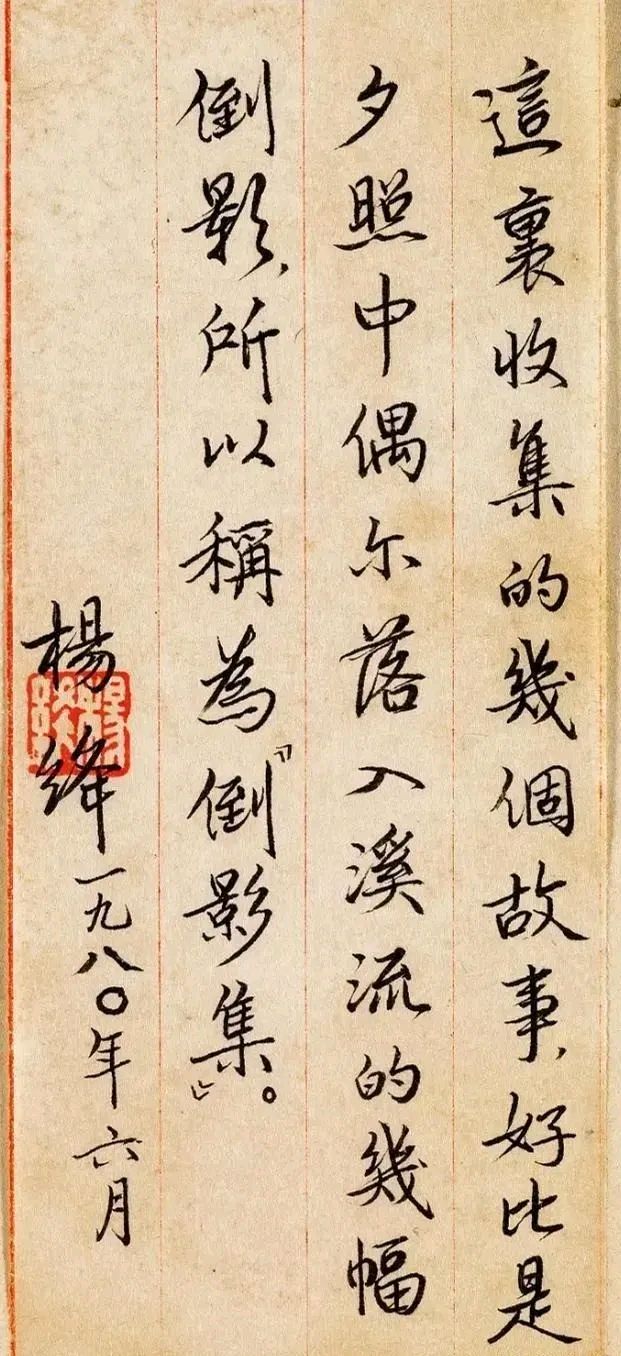 這裏收集的幾個故事，好比是
夕照中偶尔落入溪流的幾幅
倒影，所以稱為『倒影集』。
楊絳一九八〇年六月